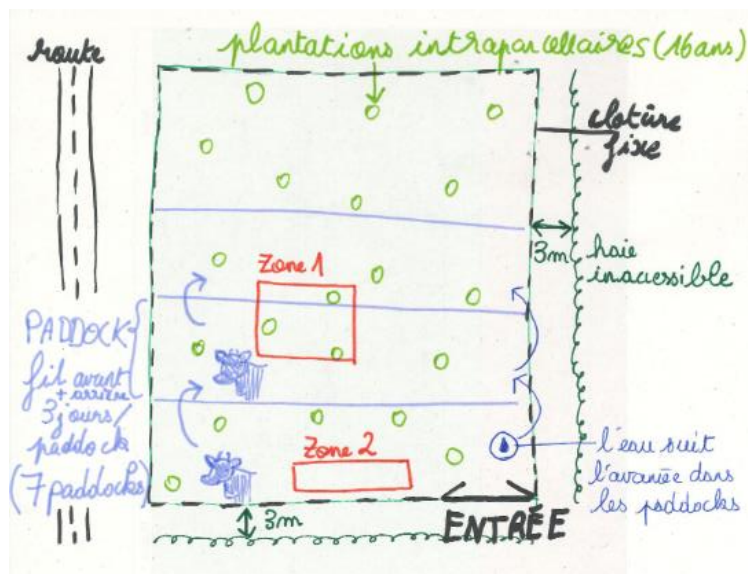 route
plantations intraparcellaires (16ans)
clotûre
fixe
3m
haie
inaccessible
Zone 1
PADDOCK
fil avant
+ arrière
3 jours/
paddock
(7 paddocks)
Zone 2
l'eau suit
l'avancée dans
les paddocks
3m
ENTRÉE